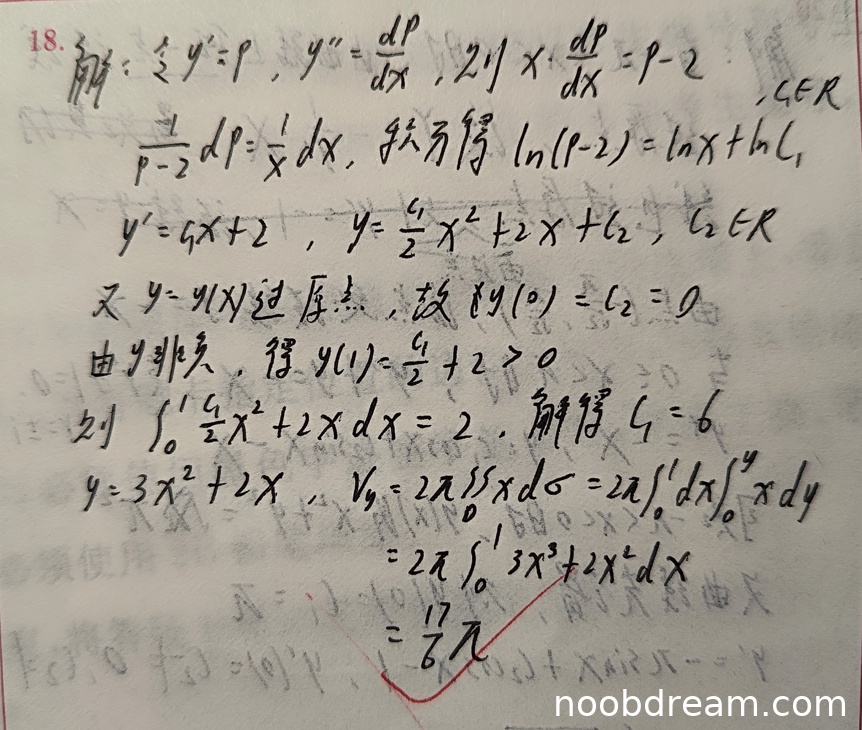 18.
解：令 y'=p , y''=dp/dx , 则 x·dp/dx=p-2
1/(p-2) dp=1/x dx , 积分得 ln(p-2)=lnx+lnC₁ , C₁∈R
y'=C₁x+2 , y=C₁/2 x²+2x+C₂ , C₂∈R
又 y=y(x)过原点 , 故 y(0)=C₂=0
由 y非负 , 得 y(1)=C₁/2+2>0
则 ∫₀¹ C₁/2 x²+2x dx=2 , 解得 C₁=6
y=3x²+2x , Vy=2π∬_D xdσ=2π∫₀¹dx∫₀^y xdy
=2π∫₀¹ 3x³+2x²dx
=17/6 π
noobdream.com